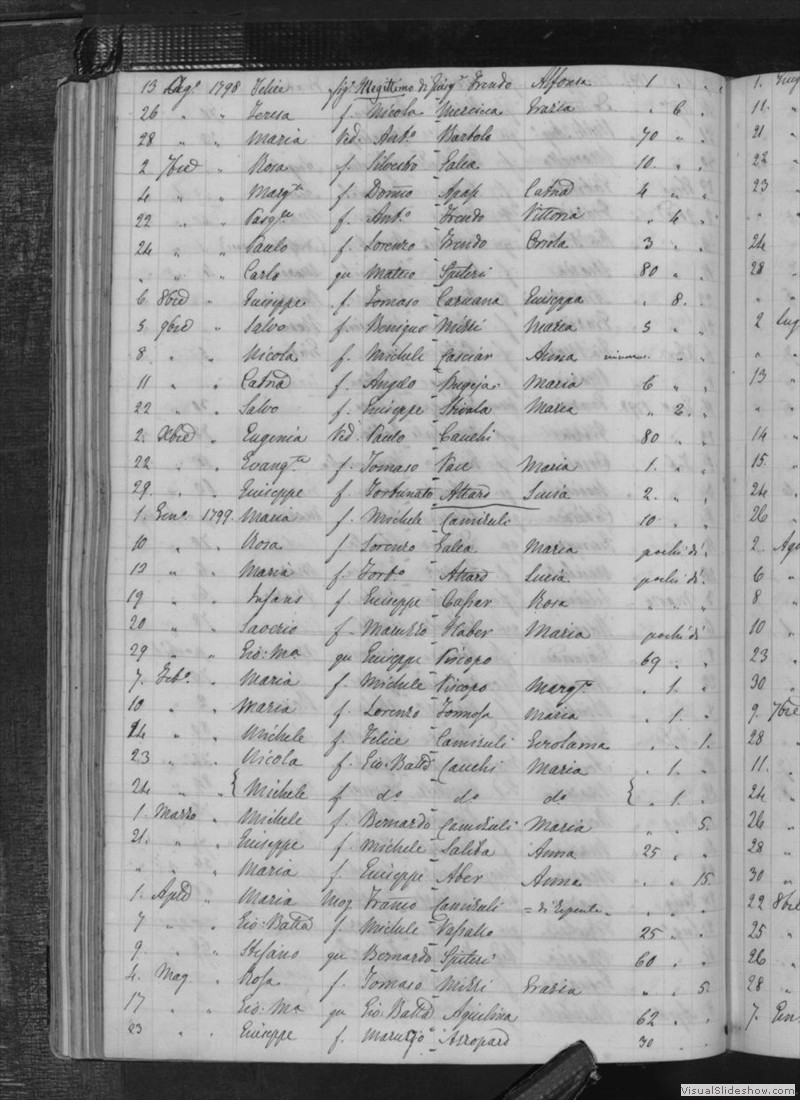 13 Agº 1798 Felice fig. illegittimo di Pasqº Trendo Alfonsa 1 " "
26 " " Teresa f. Nicola Mercieca Grazia " 6 "
28 " " Maria Ved. Antº Bartolo 70 " "
2 7bre " Rosa f. Silvestro Galea 10 " "
4 " " Margta f. Domco Apap Catna 4 " "
22 " " Pasqle f. Antº Trendo Vittoria " 4 "
24 " " Paulo f. Lorenzo Trendo 3 " "
" " " Carlo qu Matteo Spiteri 80 " "
6 8bre " Giuseppe f. Tomaso Caruana Giuseppa " 8 "
5 9bre " Salvo f. Benigno Mizzi Maria 5 " "
8 " " Nicola f. Michele Casciar Anna " "
11 " " Catna f. Angelo Bugeja Maria 6 " "
22 " " Salvo f. Giuseppe Stivala Maria " 2 "
2 Xbre " Eugenia Ved. Paulo Cauchi 80 " "
22 " " Evangta f. Tomaso Maria 1 " "
29 " " Giuseppe f. Fortunato Attard Lucia 2 " "
1 Genº 1799 Maria f. Michele Camizuli 10 " "
10 " " Rosa f Lorenzo Galea Maria pochi dì
12 " " Maria f. Fortº Attard Lucia pochi dì
19 " " Infans f Giuseppe Cassar Rosa " " "
20 " " Saverio f Haber Maria pochi dì
29 " " Gio: Ma qu Giuseppe Piscopo 69 " "
7 Febº " Maria f. Michele Piscopo Margta " 1 "
10 " " Maria f. Lorenzo Formosa Maria " 1 "
14 " " Michele f. Felice Camizuli Gerolama " " 1
23 " " Nicola f. Gio: Batta Cauchi Maria " 1 "
24 " " { Michele f dº dº dº { " 1 "
1 Marzo " Michele f. Bernardo Camizuli Maria " " 5
21 " " Giuseppe f. Michele Saliba Anna 25 " "
" " " Maria f. Giuseppe Aber Anna " " 15
1 Aple " Maria Mog. Franco Camizuli = di repente " " "
7 " " Gio: Batta f. Michele Vassallo 25 " "
9 " " Stefano qu Bernardo Spiteri 60 " "
4 Mag " Rosa f. Tomaso Mizzi Grazia " " 5
17 " " Gio: Ma qu Gio: Batta Aquilina 62 " "
23 " " Giuseppe f. Azzopard 30 " "
1
11
21
22
23
"
24
28
"
2 Lug
"
13
"
14
15
24
26
2 Ago
6
8
10
23
30
9 7bre
28
11
24
26
28
30
22 8bre
25
26
28
7 Gen
VisualSlideshow.com